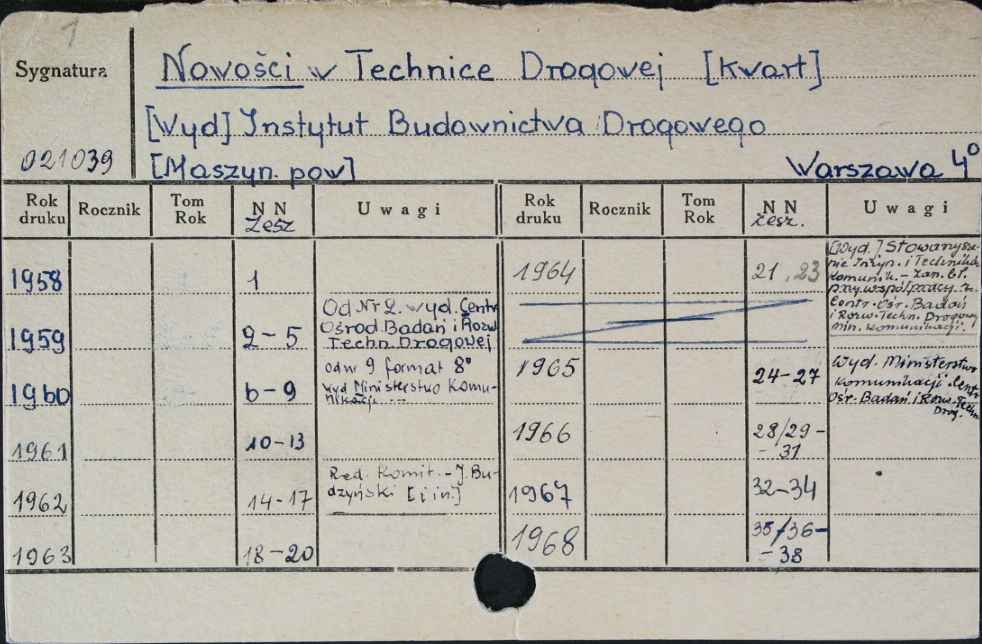 1
Sygnatura
Nowości w Technice Drogowej [kwart]
[Wyd] Instytut Budownictwa Drogowego
021039
[Maszyn. pow]
Warszawa 4°
Rok druku Rocznik Tom Rok NN Zesz Uwagi Rok druku Rocznik Tom Rok NN zesz. Uwagi
1958 1
1959 2-5
Od Nr 2. wyd. Centr
Ośrod. Badań i Rozw.
Techn. Drogowej
1960 6-9
od nr 9 format 8°
wyd Ministerstwo Komu-
nikacji
1961 10-13
1962 14-17
Red. Komit. - J. Bu-
dzyński [i in]
1963 18-20
1964 21, 23
[Wyd.] Stowarzysze-
nie Inżyn. i Techników
Komunik. -
przy współpracy z.
Centr. Ośr. Badań
i Rozw. Techn. Drogowej
Min. Komunikacji.
1965 24-27
Wyd. Ministerstwo
Komunikacji. Centr
Ośr. Badań i Rozw. Techn
Drog.
1966 28/29-
-31
1967 32-34
1968 35/36-
-38